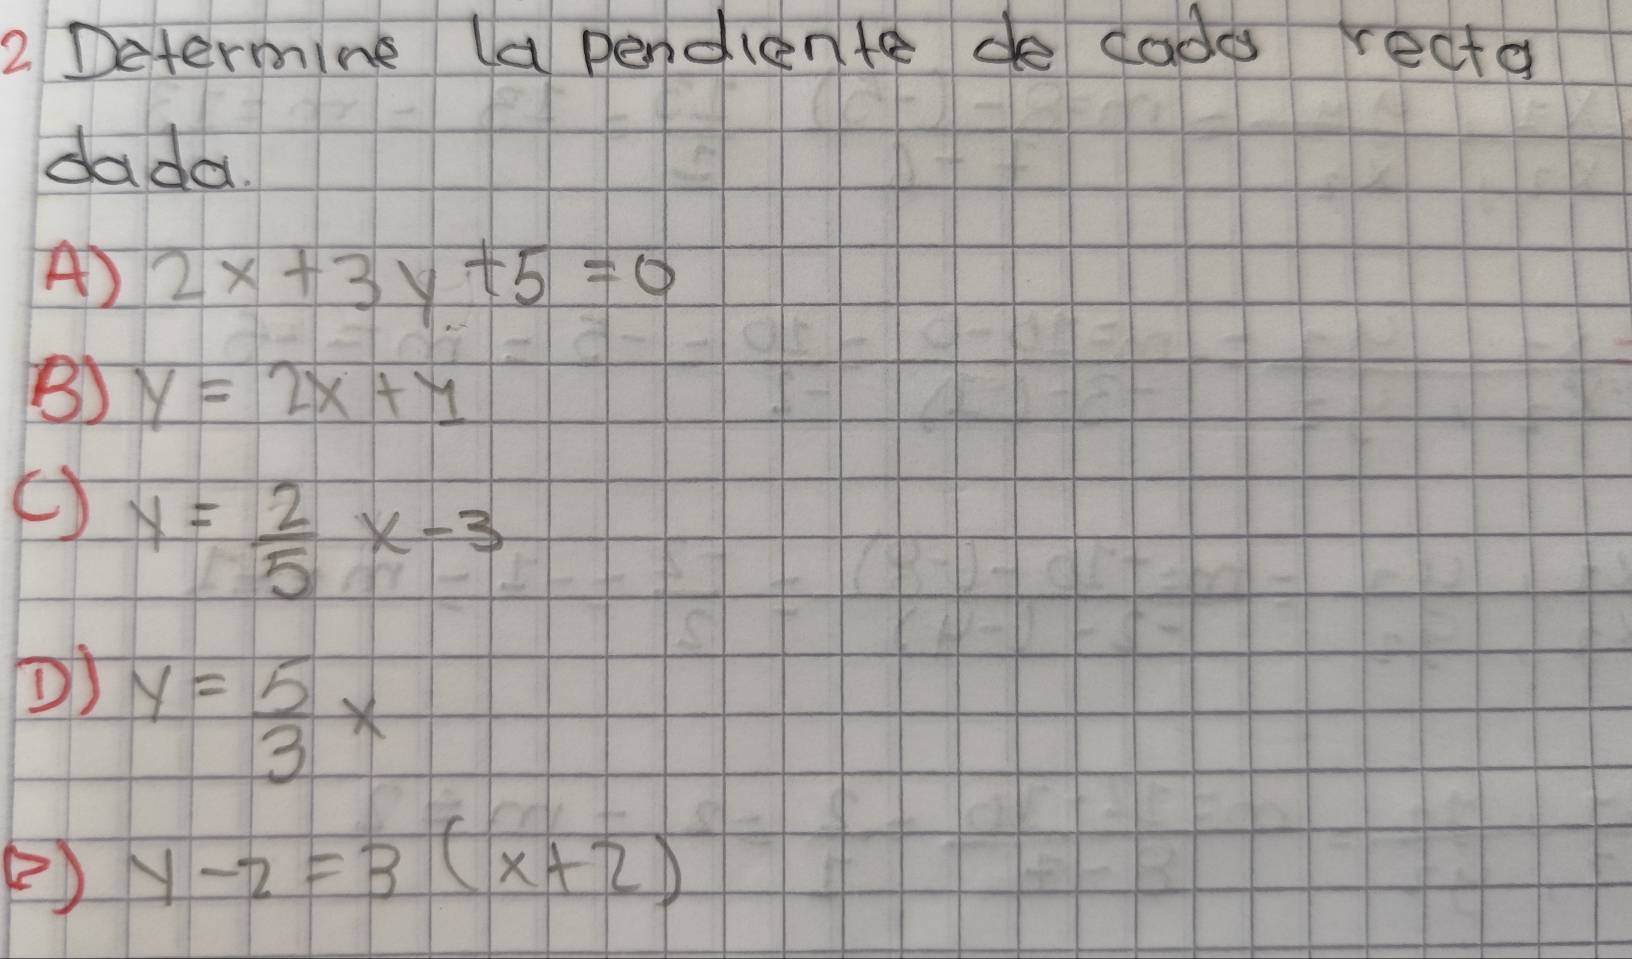 2 Determine la pendiente de cada recta
dada.
A) 2x+3y+5=0
B) y = 2x+1
C) y = 2/5 x-3
D) y = 5/3 x
E) y-2=3(x+2)